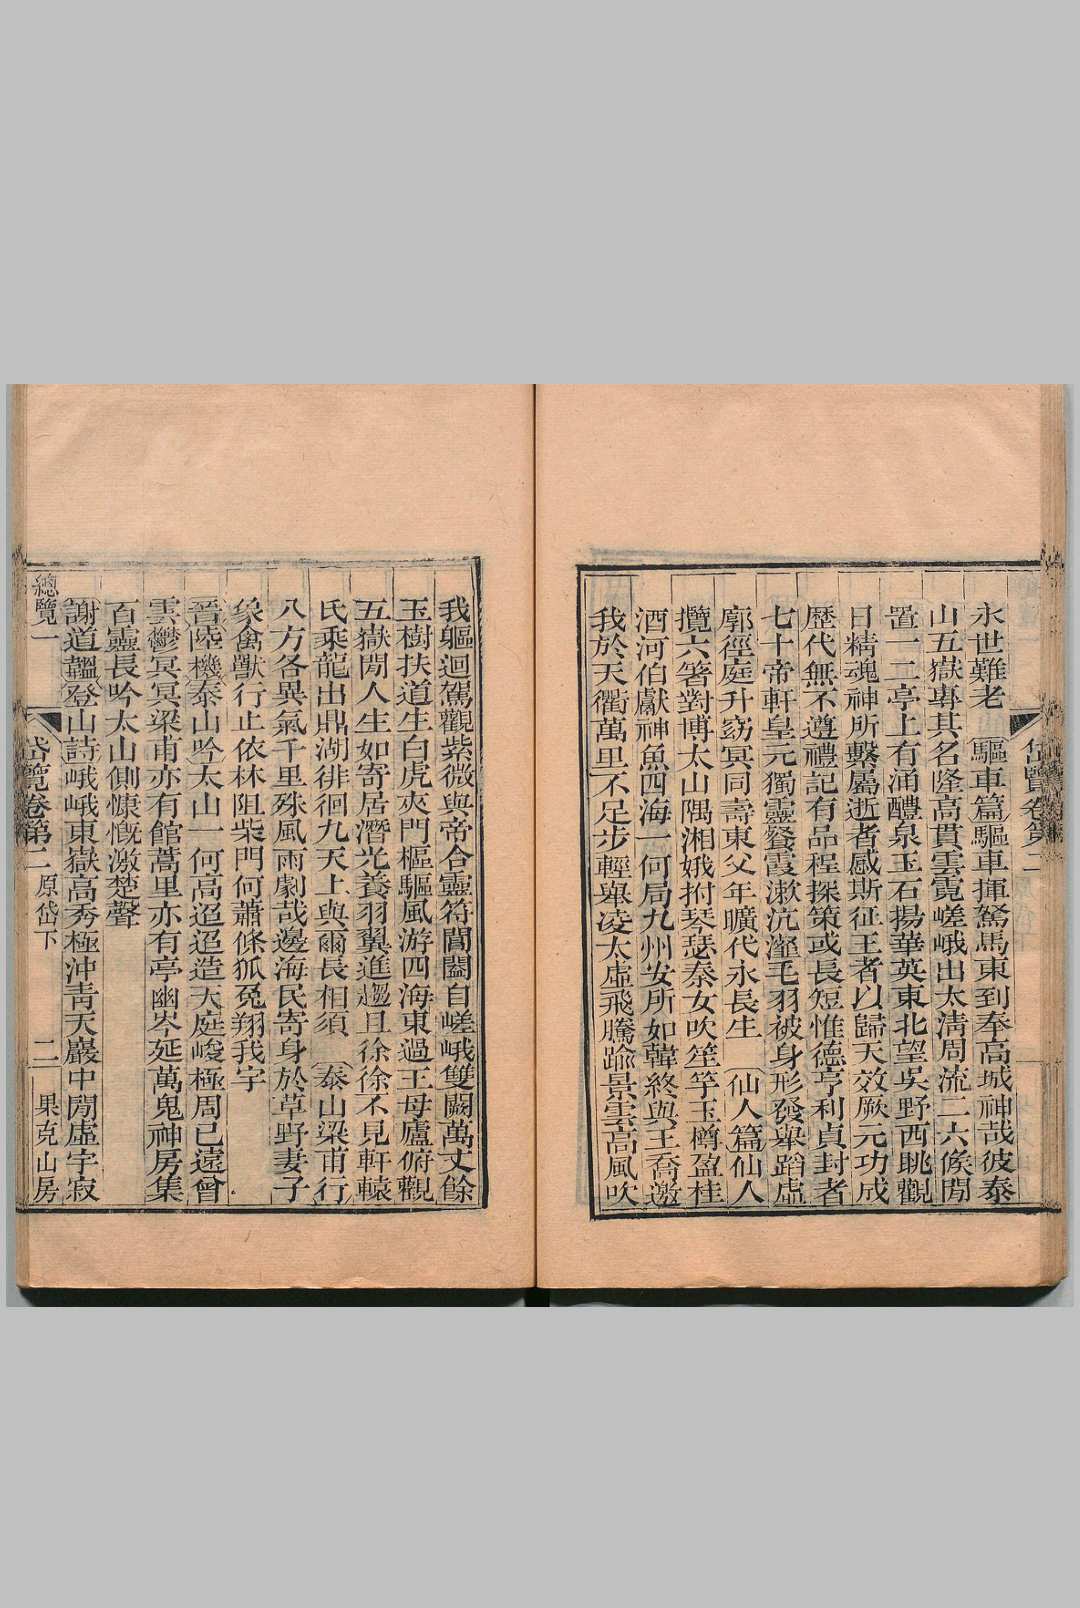 岱覽卷第二
永世難老　驅車篇驅車揮駑馬東到奉高城神哉彼泰
山五嶽專其名隆高貫雲霓嵯峨出太淸周流二六𠋫閒
置一二亭上有涌醴泉玉石揚華英東北望吳野西眺觀
日精魂神所繫屬逝者感斯征王者以歸天效厥元功成
歷代無不遵禮記有品程探策或長短惟德亨利貞封者
七十帝軒皇元獨靈餐霞漱沆瀣毛羽被身形發舉蹈虛
廓徑庭升窈冥同壽東父年曠代永長生　仙人篇仙人
攬六箸對博太山隅湘娥拊琴瑟秦女吹笙竽玉樽盈桂
酒河伯獻神魚四海一何局九州安所如韓終與王喬邀
我於天衢萬里不足步輕舉凌太虛飛騰踰景雲高風吹
我軀迴駕觀紫微與帝合靈符閶闔自嵯峨雙闕萬丈餘
玉樹扶道生白虎夾門樞驅風游四海東過王母廬俯觀
五嶽閒人生如寄居潛光養羽翼進趨且徐徐不見軒轅
氏乘龍出鼎湖徘徊九天上與爾長相須　泰山梁甫行
八方各異氣千里殊風雨劇哉邊海民寄身於草野妻子
象禽獸行止依林阻柴門何蕭條狐兔翔我宇
晉陸機泰山吟太山一何高迢迢造天庭峻極周已遠曾
雲鬱冥冥梁甫亦有館蒿里亦有亭幽岑延萬鬼神房集
百靈長吟太山側慷慨激楚聲
謝道韞登山詩峨峨東嶽高秀極沖靑天巖中閒虛宇寂
總覽一　岱覽卷第二　原岱下　二　果克山房